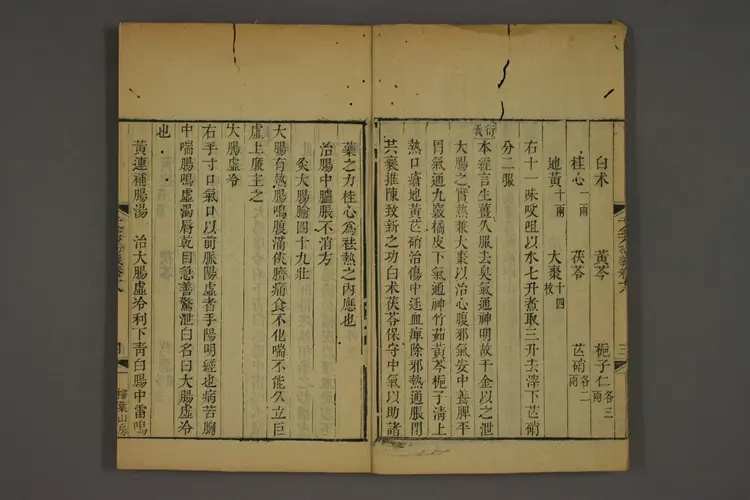 白术 黃芩 梔子仁各三兩
桂心一兩 茯苓 芒硝各二兩
地黃十兩 大棗十四枚
右十一味㕮咀以水七升煮取三升去滓下芒硝
分二服
衍義 本經言生薑久服去臭氣通神明故千金以之泄
大腸之實熱兼大棗以治心腹邪氣安中養脾平
胃氣通九竅橘皮下氣通神竹茹黃芩梔子清上
熱口瘡地黃芒硝治傷中逐血痺除邪熱通脹閉
共襄推陳致新之功白术茯苓保守中氣以助諸
藥之力桂心為祛熱之內應也
治腸中臚脹不消方
灸大腸腧四十九壯
大腸有熱腸鳴腹滿俠臍痛食不化喘不能久立巨
虛上廉主之
大腸虛冷
右手寸口氣口以前脈陽虛者手陽明經也病苦胸
中喘腸鳴虛渴唇乾目急善驚泄白名曰大腸虛冷
也
黃連補腸湯 治大腸虛冷利下青白腸中雷鳴
掃葉山房